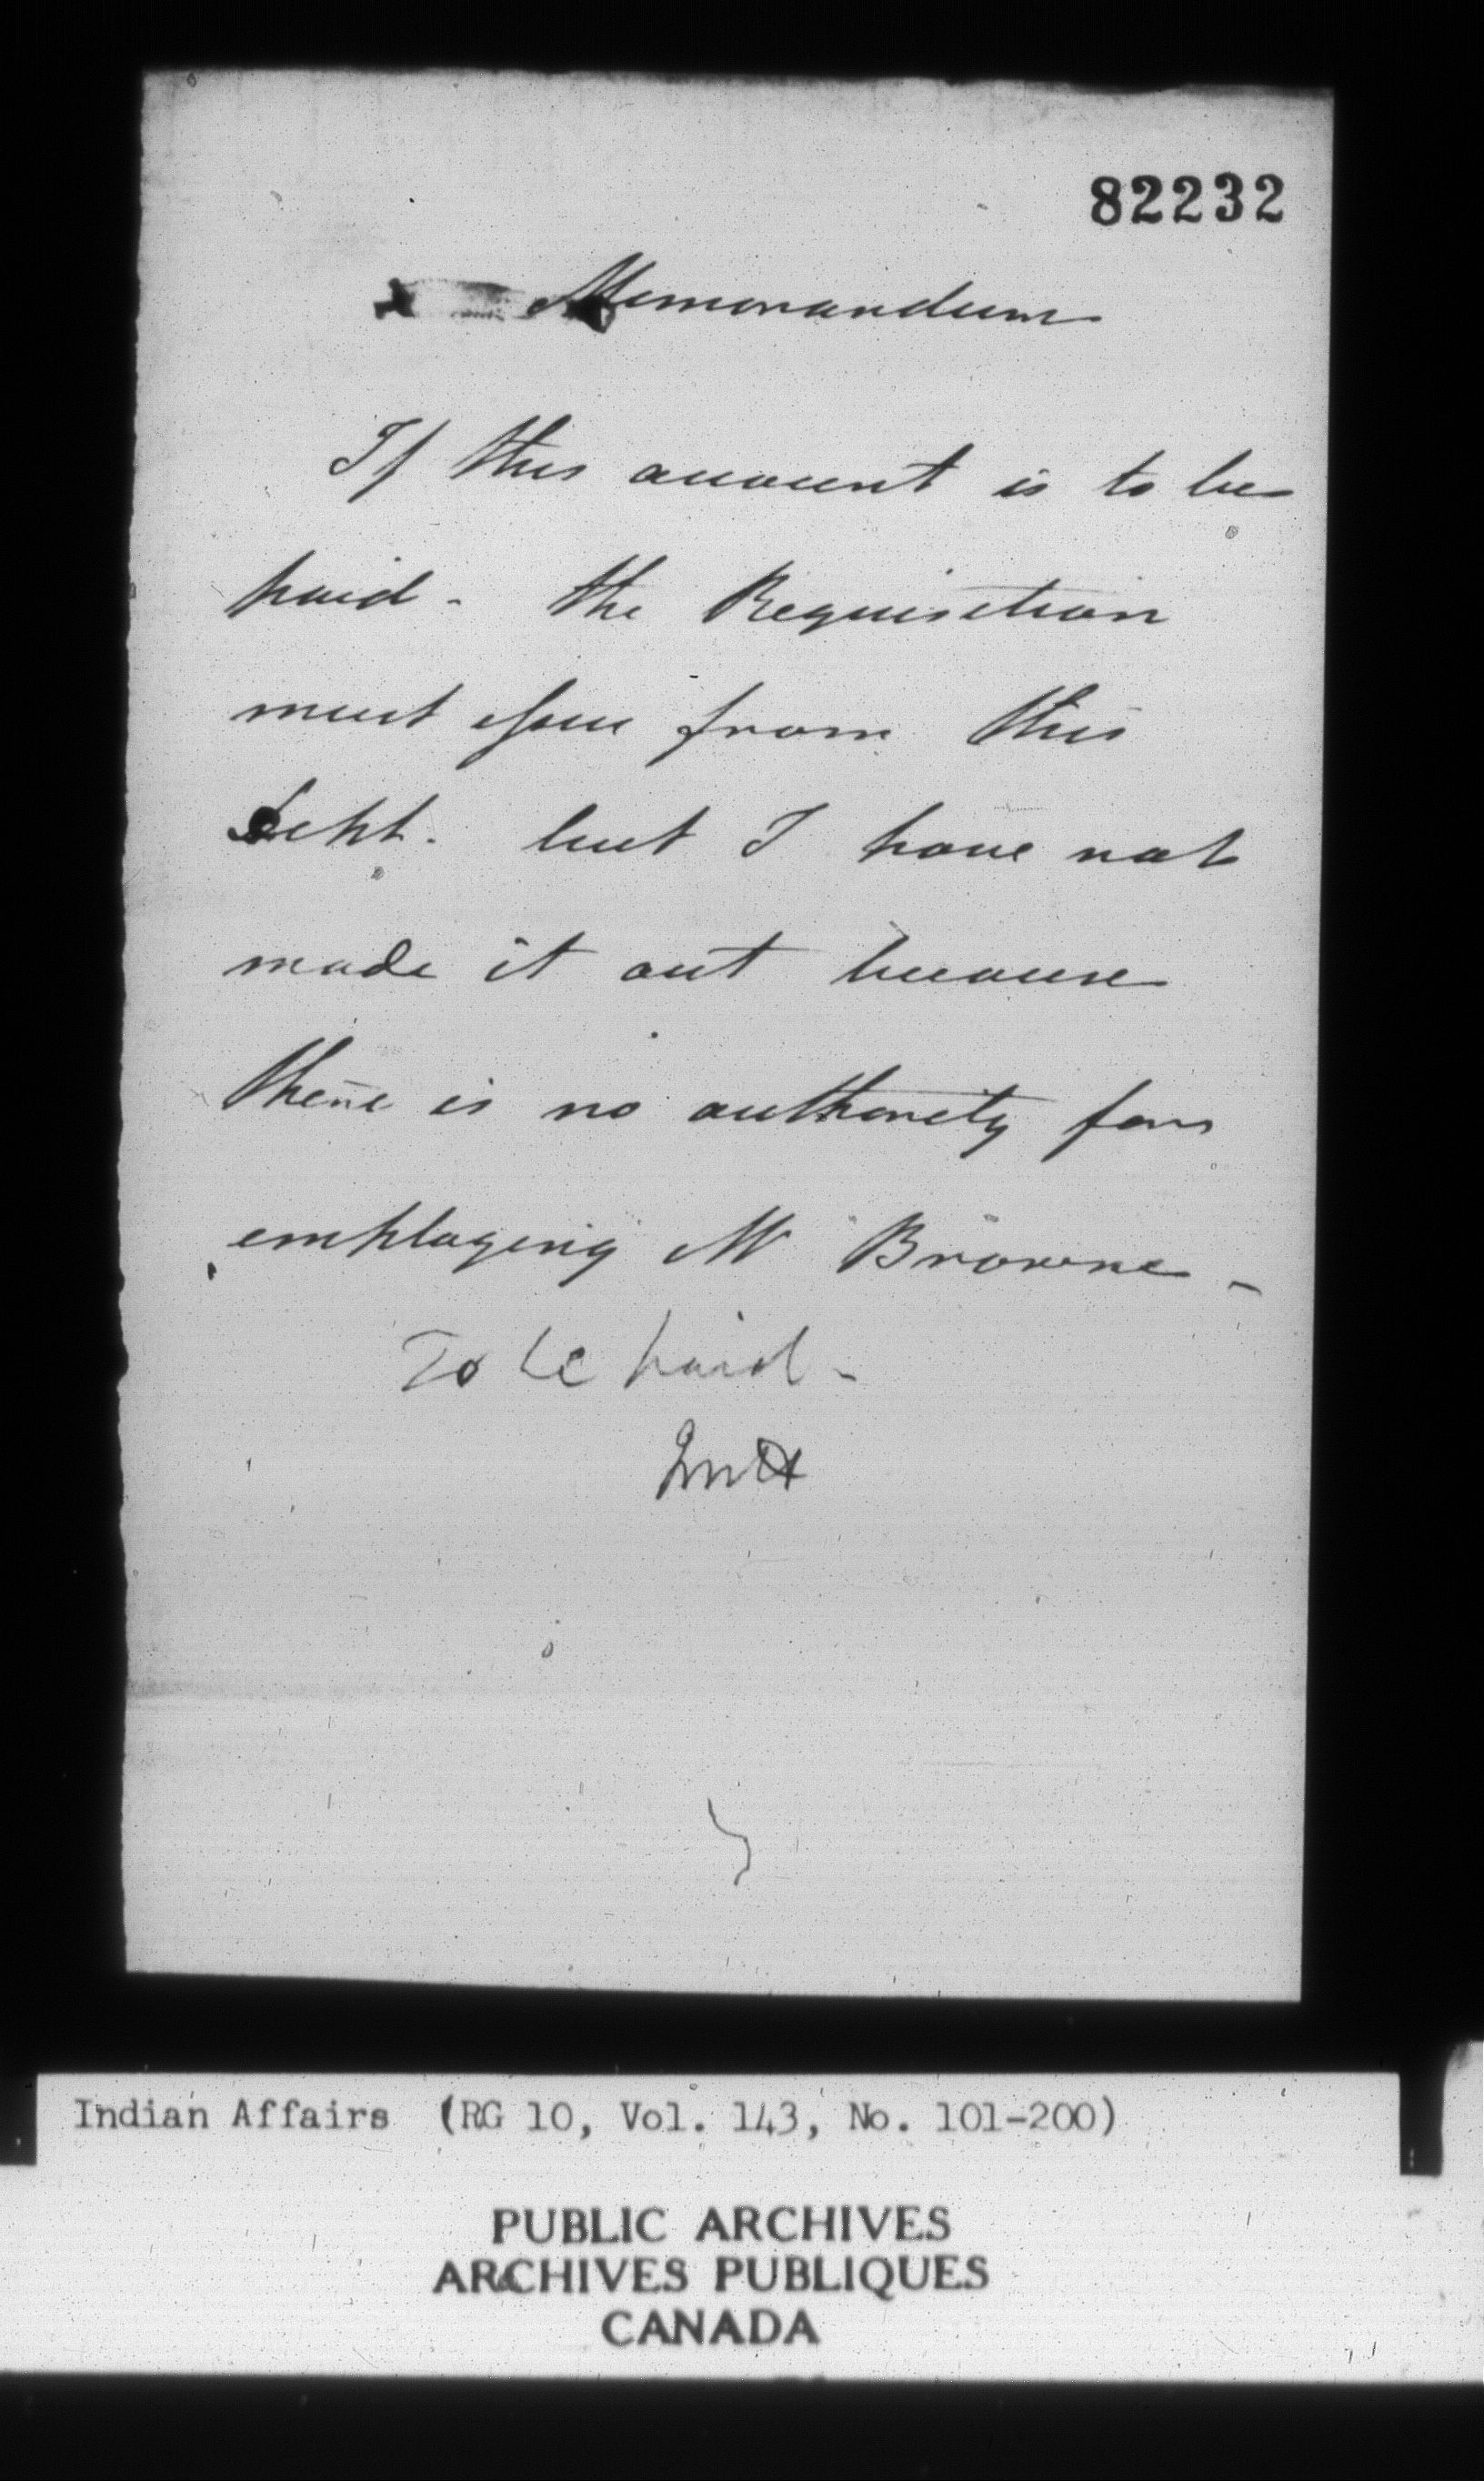 82232
Memorandum
If this account is to be
paid - the Requisition
must issue from this
Dept. but I have not
made it out because
there is no authority for
employing Mr Browne -
To be paid -
Indian Affairs (RG 10, Vol. 143, No. 101-200)
PUBLIC ARCHIVES
ARCHIVES PUBLIQUES
CANADA